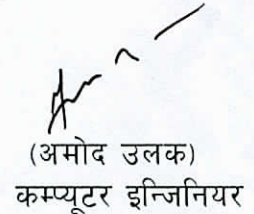 (अमोद उलक)
कम्प्यूटर इन्जिनियर